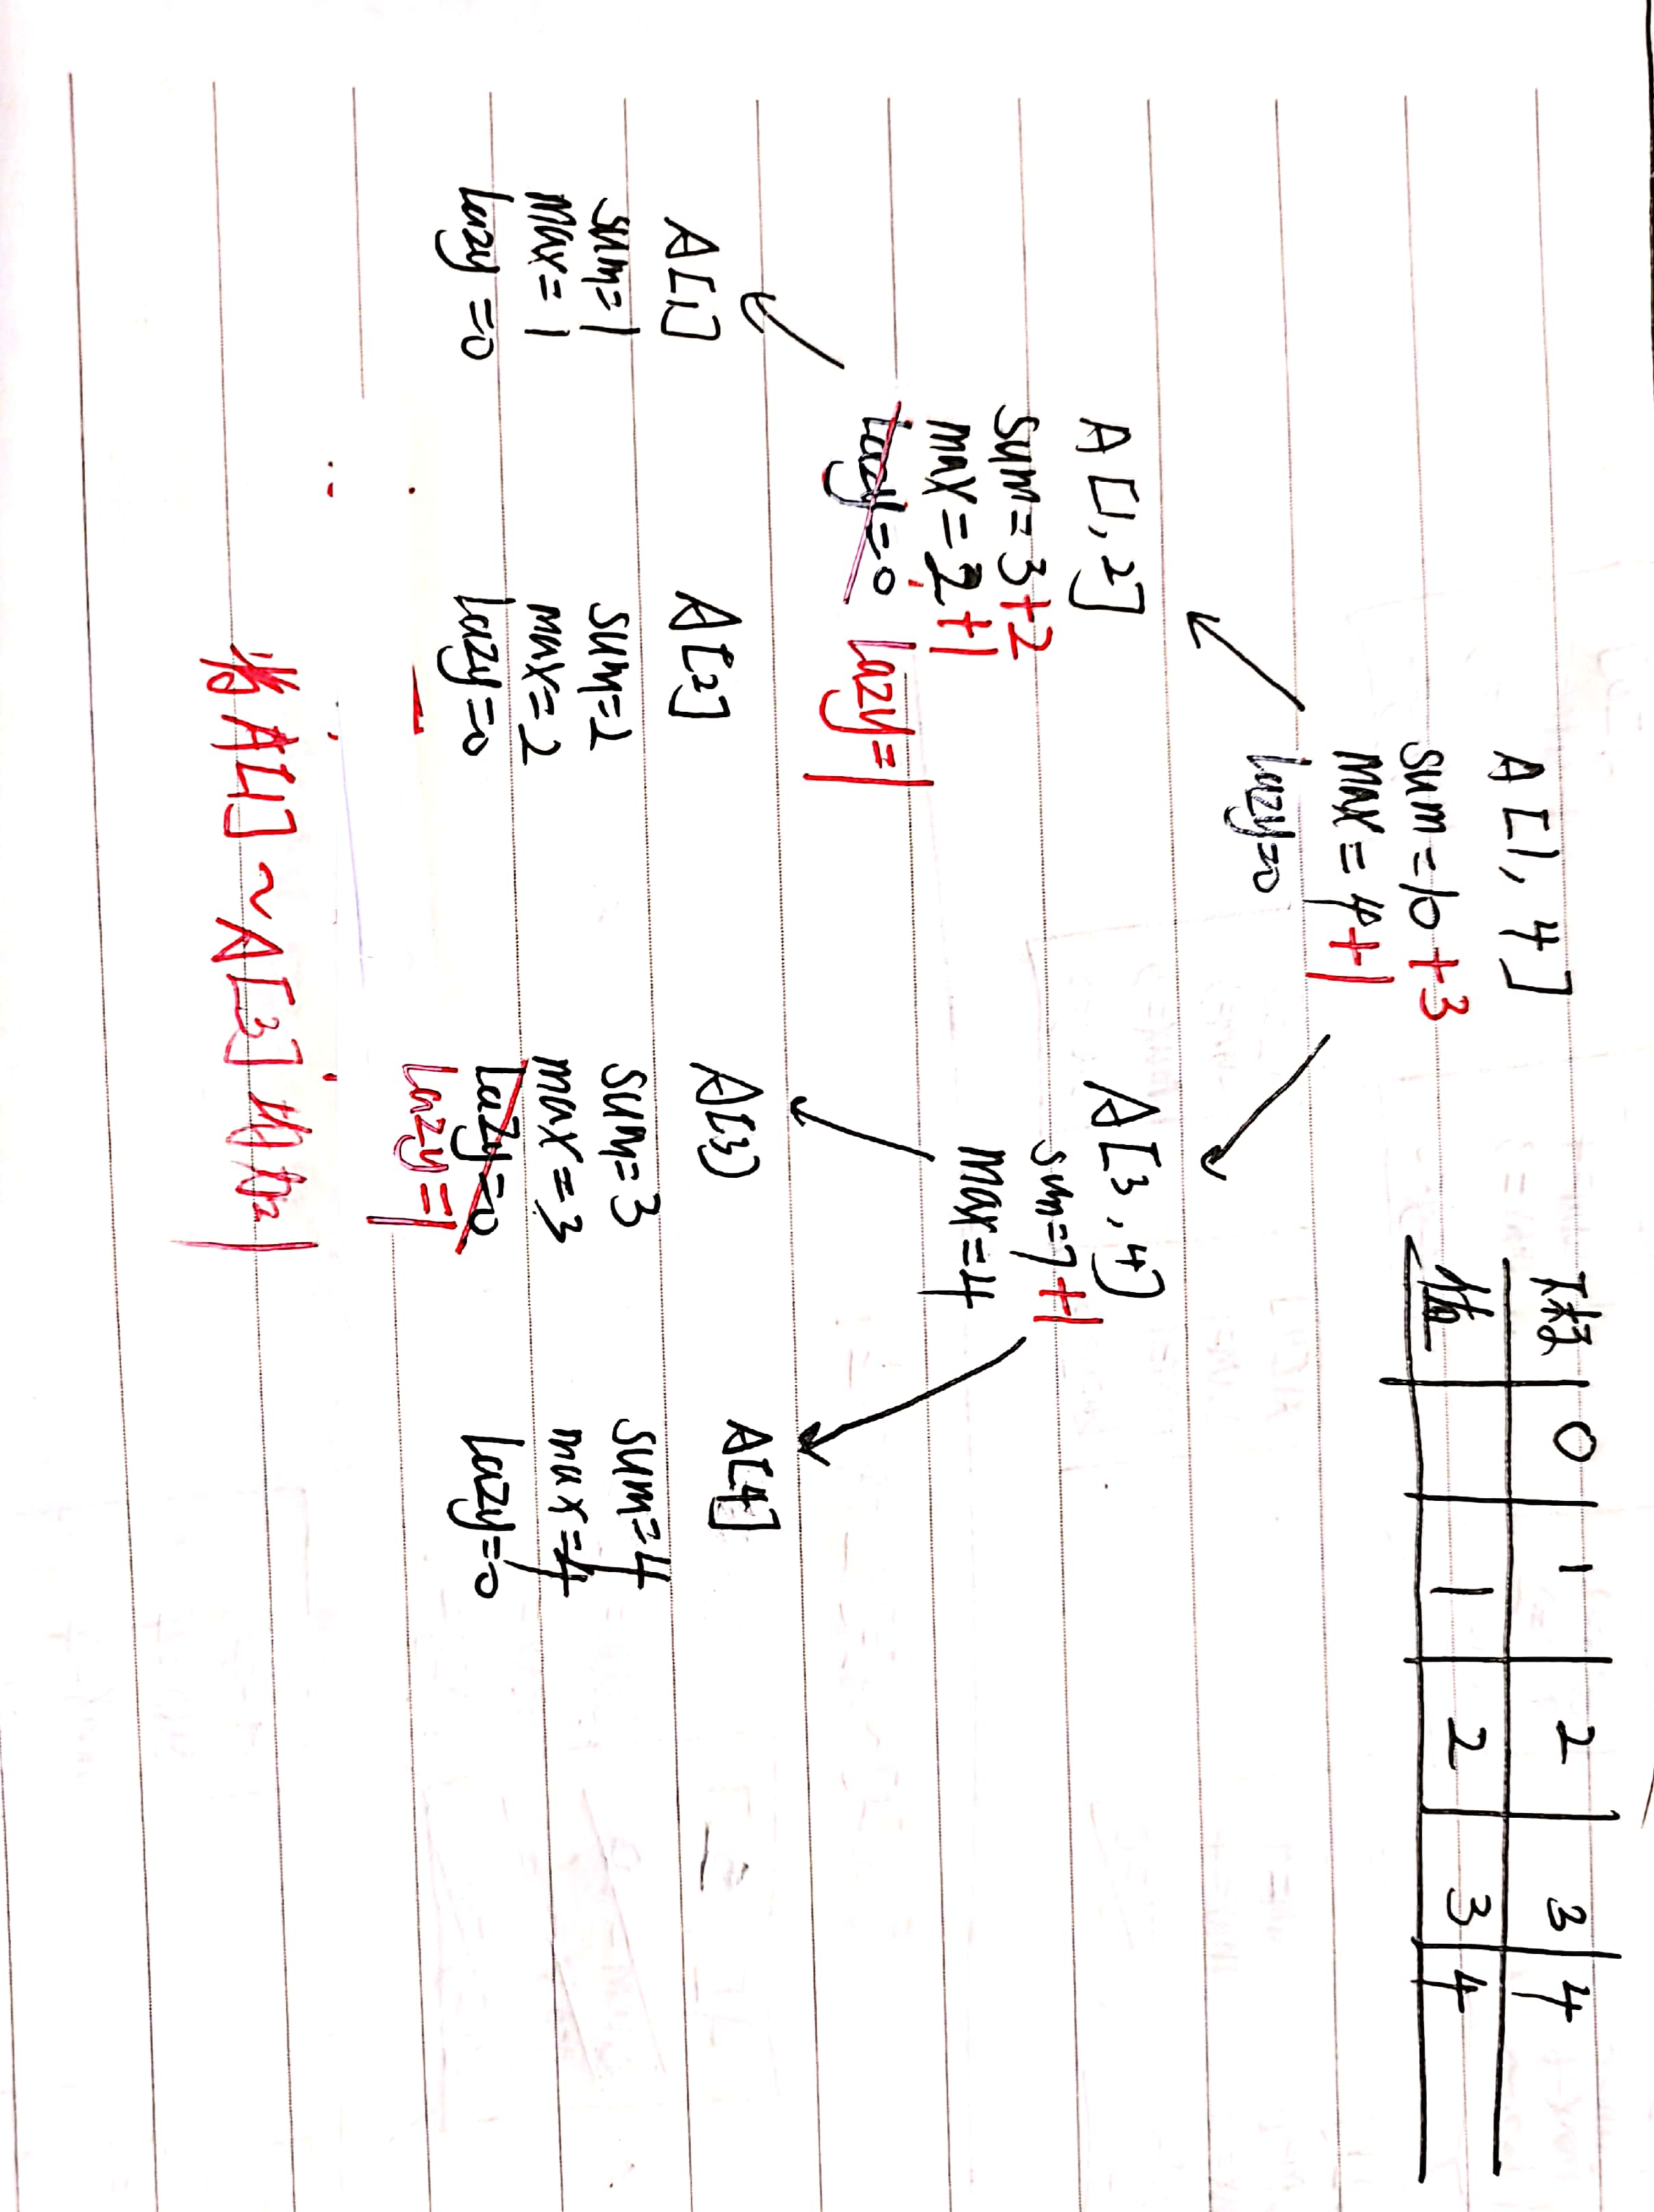 下标 0 1 2 3 4
值 1 2 3 4
A[1,4]
sum=10+3
max=4+1
lazy=0
A[1,2]
sum=3+2
max=2+1
lazy=0 lazy=1
A[3,4]
sum=7+1
max=4
A[1]
sum=1
max=1
lazy=0
A[2]
sum=2
max=2
lazy=0
A[3]
sum=3
max=3
lazy=0
lazy=1
A[4]
sum=4
max=4
lazy=0
将A[1]~A[3]均加1